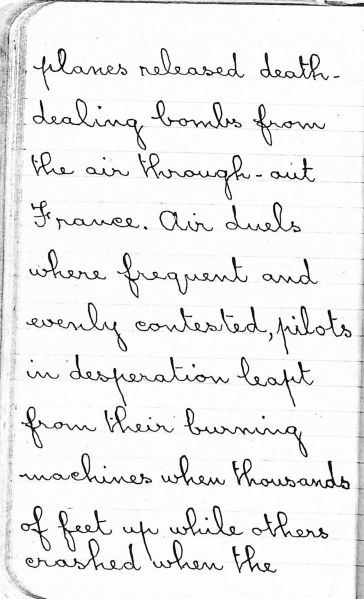 planes released death-
dealing bombs from
the air through-out
France. Air duels
where frequent and
evenly contested, pilots
in desperation leapt
from their burning
machines when thousands
of feet up while others
crashed when the